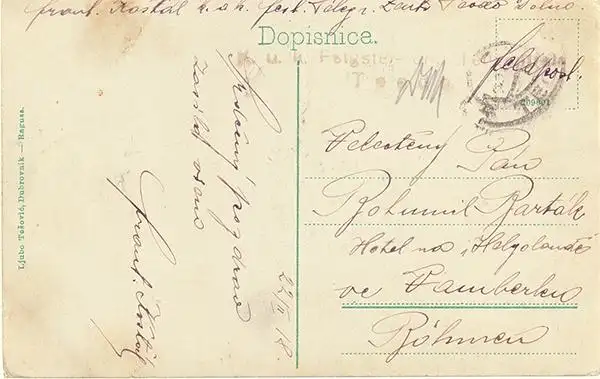 frant. Kostál k. u. k. fest. Telegr. Zent.
Dopisnica.
K. u. k.
Feldpost.
209602
Ljubo Tošović, Dubrovnik — Ragusa.
Srdečný pozdrav
zasílá
frant. Kostál
22/II 18.
Velectěný
Pán
Bohumil Barták
Hotel na „Helgolandě
ve Vamberku
Böhmen